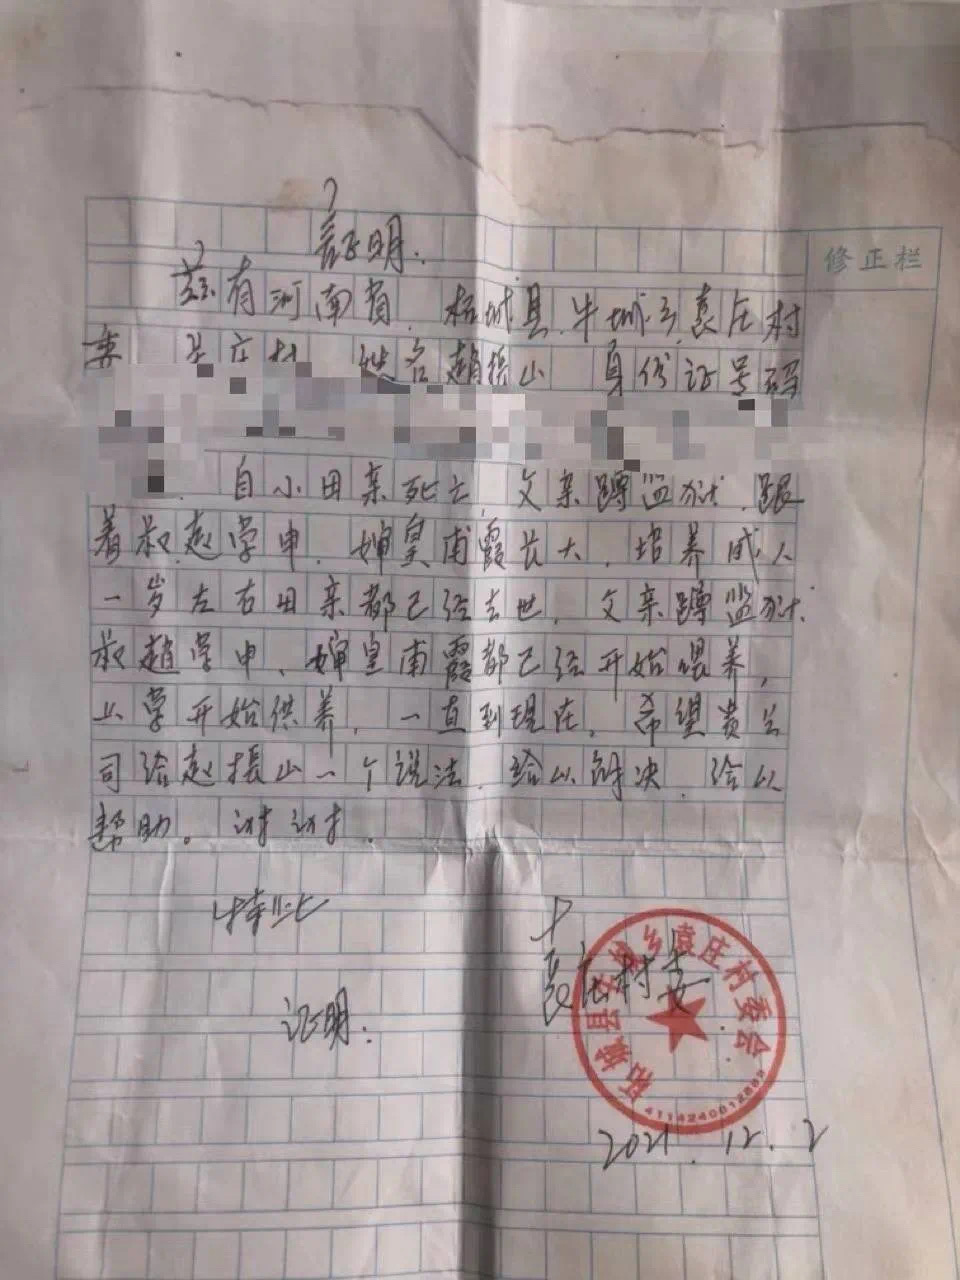 证明.
修正栏
兹有河南省.柘城县.牛城乡袁庄村
委 庄村 姓名趙振山 身份证号码
自小田亲死亡,父亲蹲监狱.跟
着叔赵学申.婶皇甫霞长大.培养成人
一岁左右田亲都已经去世.父亲蹲监狱.
叔趙学申、婶皇甫霞都已经开始喂养,
上学开始供养,一直到现在,希望贵公
司给赵振山一个说法.给以解决.给以
帮助。谢谢.
特此
证明.
袁庄村委
柘城县牛城乡袁庄村委会
2021.12.2